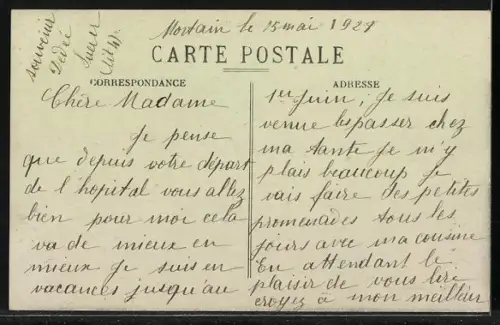 Mortain le 15 mai 1927
CARTE POSTALE
CORRESPONDANCE
Chère Madame
Je pense
que depuis votre départ
de l'hopital vous allez
bien pour moi cela
va de mieux en
mieux je suis en
vacances jusqu'au
ADRESSE
1er Juin, Je suis
venue les passer chez
ma tante je m'y
plais beaucoup je
vais faire des petites
promenades tous les
jours avec ma cousine
En attendant le
plaisir de vous lire
croyez à mon meilleur
souvenir
Dédée